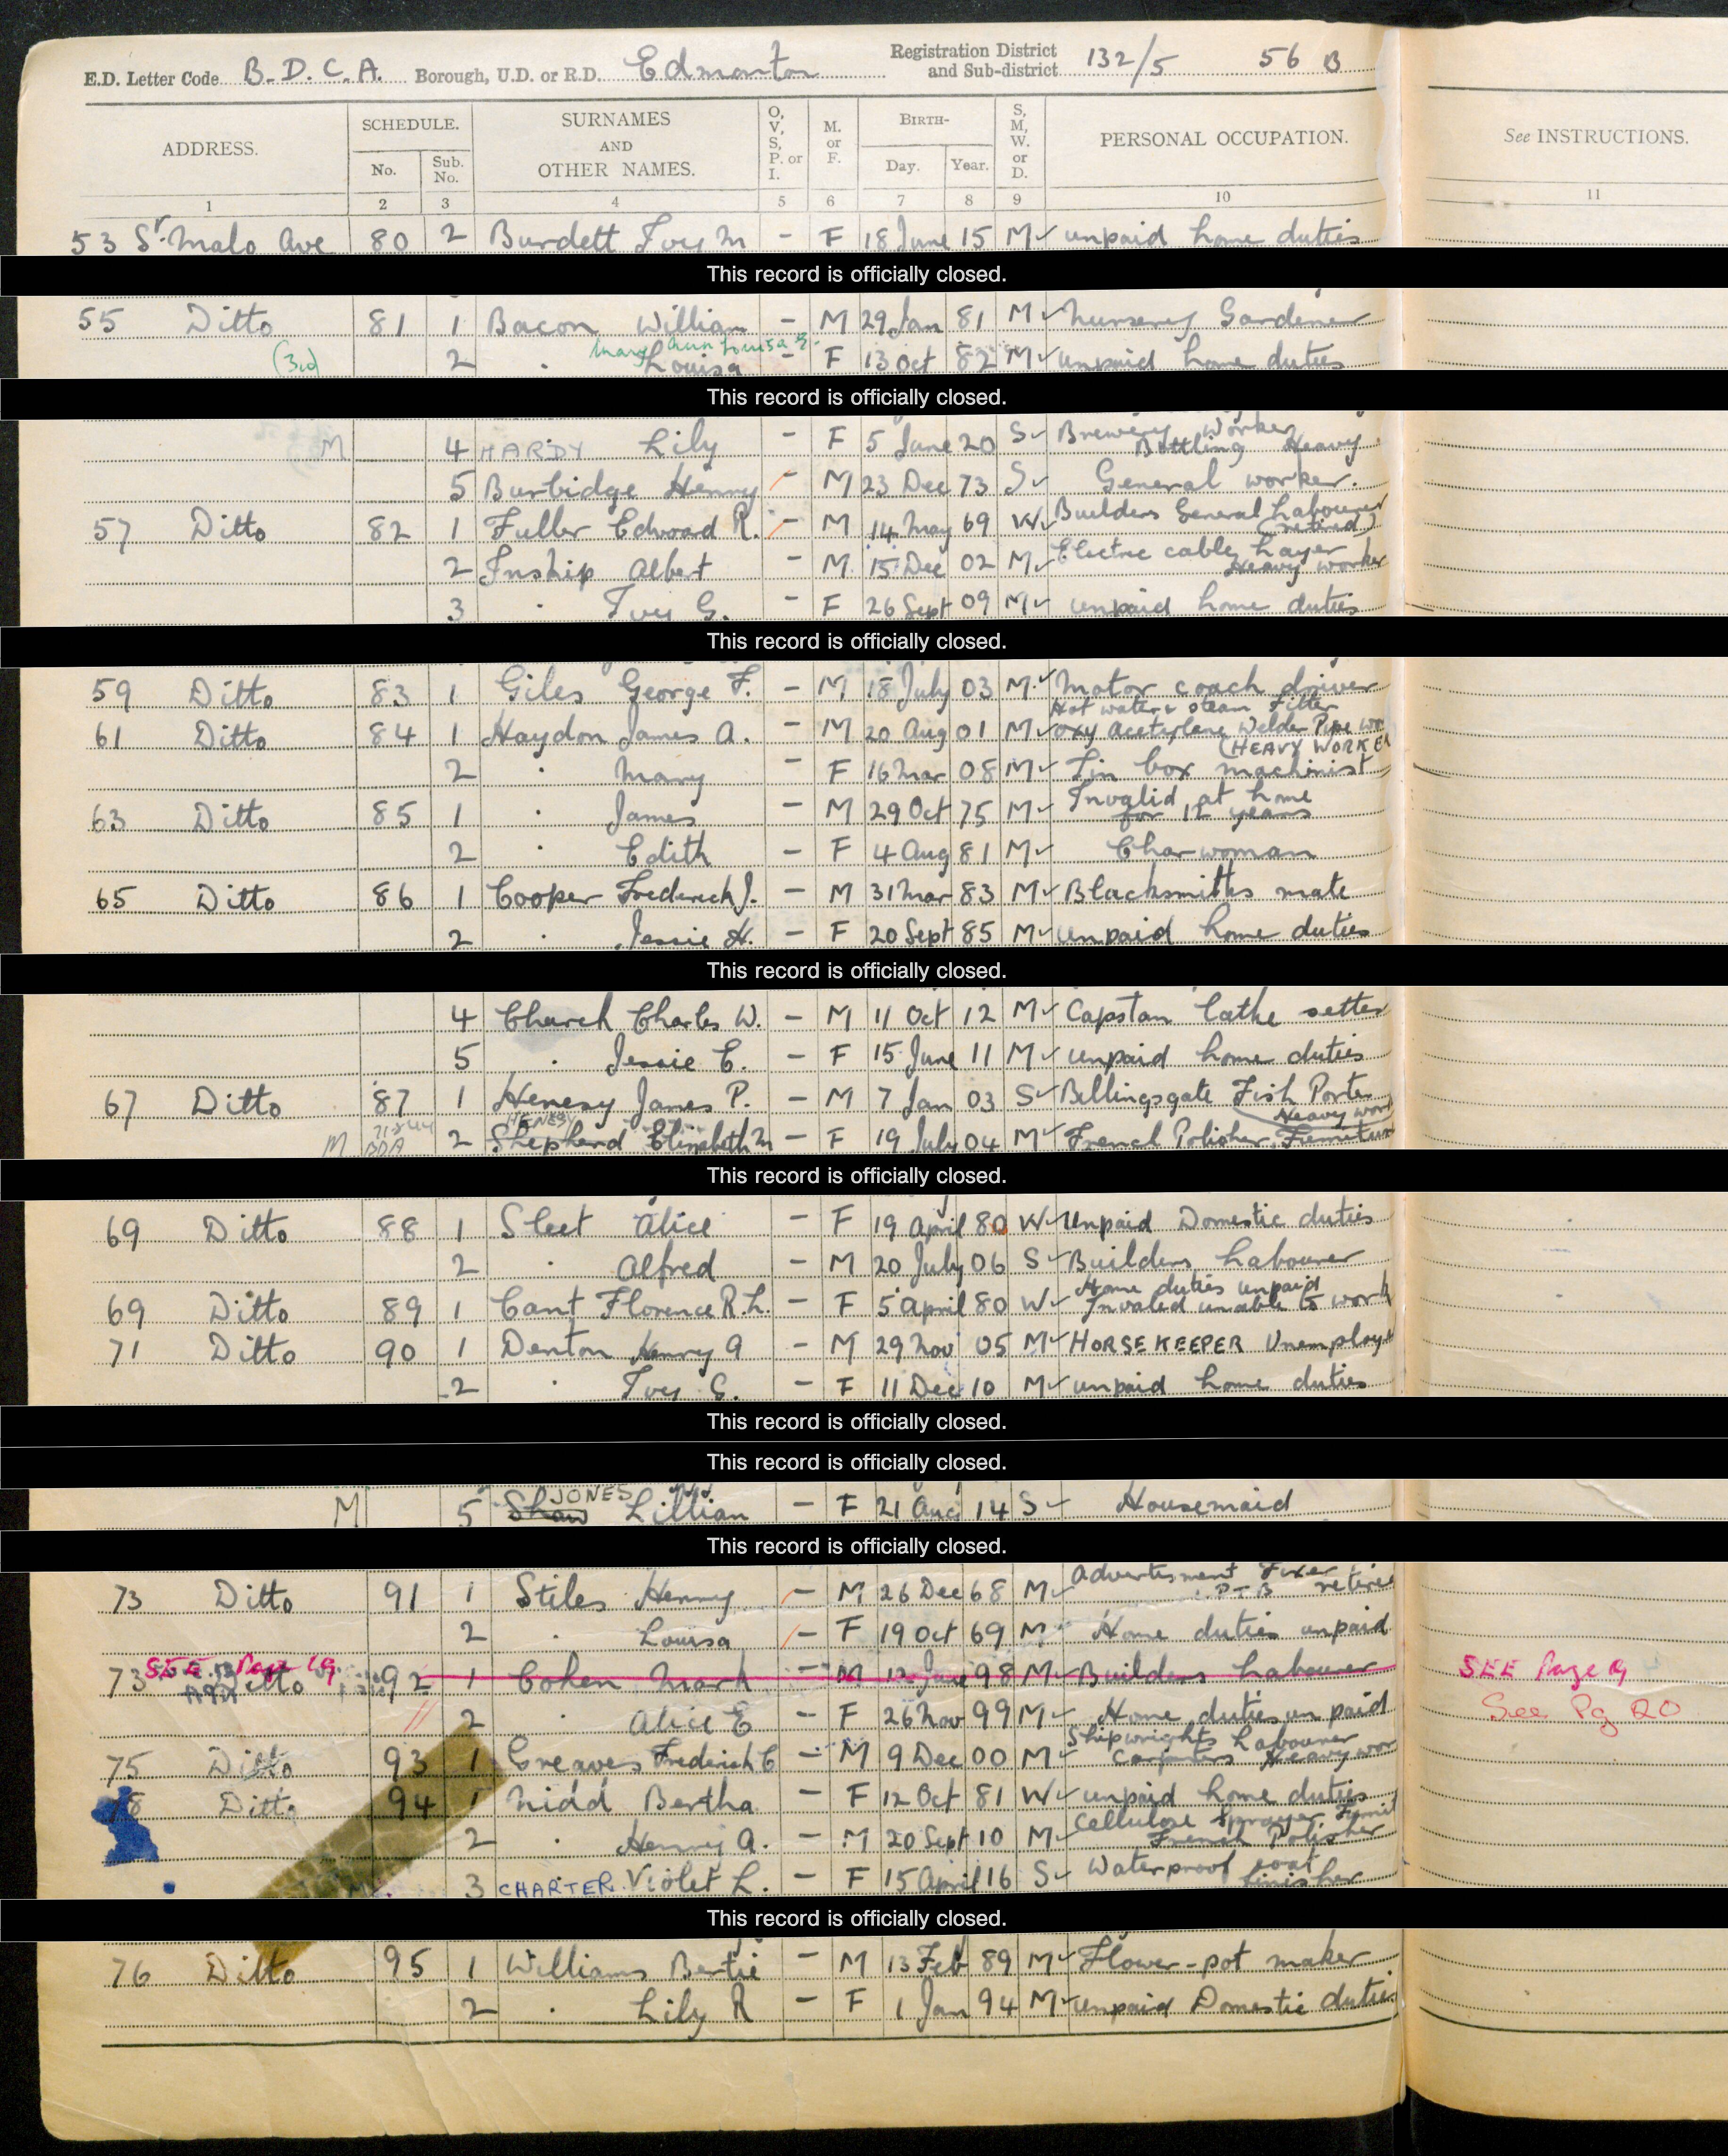 E.D. Letter Code B.D.C.A. Borough, U.D. or R.D. Edmonton Registration District and Sub-district 132/5 56 B
ADDRESS. SCHEDULE. No. Sub. No. SURNAMES AND OTHER NAMES. O, V, S, P. or I. M. or F. BIRTH- Day. Year. S, M, W. or D. PERSONAL OCCUPATION. See INSTRUCTIONS.
1 2 3 4 5 6 7 8 9 10 11
53 St. Malo Ave 80 2 Burdett Ivy M - F 18 June 15 M unpaid home duties
This record is officially closed.
55 Ditto 81 1 Bacon William - M 29 Jan 81 M Nursery Gardener
Mary Ann Louisa
2 " Louisa - F 13 Oct 82 M unpaid home duties
This record is officially closed.
M 4 HARDY Lily - F 5 June 20 S Brewery Worker Bottling Heavy
5 Burbidge Henry - M 23 Dec 73 S General worker.
57 Ditto 82 1 Fuller Edward R. - M 14 May 69 W Builders General Labourer (retired)
2 Inship Albert - M 15 Dec 02 M Electric cable Layer Heavy worker
3 " Ivy G. - F 26 Sept 09 M unpaid home duties
This record is officially closed.
59 Ditto 83 1 Giles George F. - M 18 July 03 M Motor coach driver
61 Ditto 84 1 Haydon James A. - M 20 Aug 01 M Hot water & steam Fitter oxy acetylene Welder Pipe wo (HEAVY WORKER
2 " Mary - F 16 Mar 08 M Tin box machinist
63 Ditto 85 1 " James - M 29 Oct 75 M Invalid at home for 12 years
2 " Edith - F 4 Aug 81 M Charwoman
65 Ditto 86 1 Cooper Frederick J. - M 31 Mar 83 M Blacksmiths mate
2 " Jessie H. - F 20 Sept 85 M unpaid home duties
This record is officially closed.
4 Church Charles W. - M 11 Oct 12 M Capstan lathe setter
5 " Jessie C. - F 15 June 11 M unpaid home duties
67 Ditto 87 1 Henesy James P. - M 7 Jan 03 S Billingsgate Fish Porter Heavy work
HENESY
M BDA 2 Shepherd Elizabeth M - F 19 July 04 M French Polisher Furniture
This record is officially closed.
69 Ditto 88 1 Sleet Alice - F 19 April 80 W Unpaid Domestic duties
2 " Alfred - M 20 July 06 S Builders Labourer
69 Ditto 89 1 Cant Florence R.L. - F 5 April 80 W Home duties unpaid Invalid unable to work
71 Ditto 90 1 Denton Henry A - M 29 Nov 05 M HORSE KEEPER Unemploye
2 " Ivy G. - F 11 Dec 10 M unpaid home duties
This record is officially closed.
This record is officially closed.
JONES
M 5 Shaw Lillian - F 21 Aug 14 S Housemaid
This record is officially closed.
73 Ditto 91 1 Stiles Henry - M 26 Dec 68 M Advertisment Fixer L.P.T.B retired
2 " Louisa - F 19 Oct 69 M Home duties unpaid
SEE Page 19
73 Ditto 92 1 Cohen Mark - M 12 June 98 M Builders Labourer SEE Page 19
2 " Alice E - F 26 Nov 99 M Home duties unpaid See Pg 20
75 Ditto 93 1 Greaves Frederick C - M 9 Dec 00 M Shipwrights Labourer Carpenters Heavy wor
78 Ditto 94 1 Nidd Bertha - F 12 Oct 81 W unpaid home duties
2 " Henry A. - M 20 Sept 10 M Cellulose sprayer Furnit French Polisher
3 CHARTER Violet L. - F 15 April 16 S Waterproof coat finisher
This record is officially closed.
76 Ditto 95 1 Williams Bertie - M 13 Feb 89 M Flower-pot maker
2 " Lily R - F 1 Jan 94 M unpaid Domestic duties